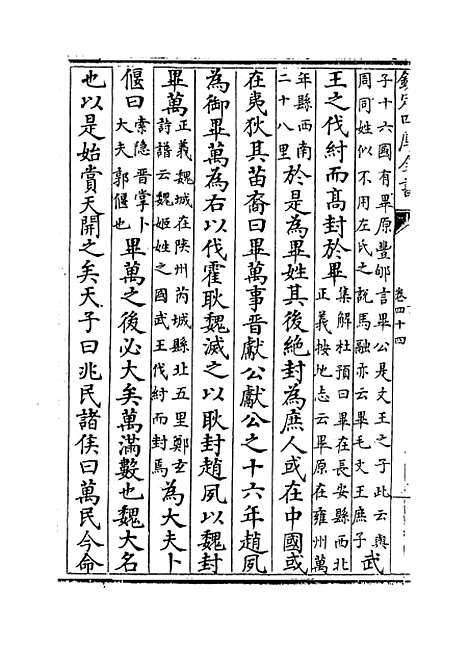 欽定四庫全書
卷四十四
子十六國有畢原豐郇言畢公是文王之子此云與
周同姓似不用左氏之説馬融亦云畢毛文王庶子
武
王之伐紂而髙封於畢
集解杜預曰畢在長安縣西北
正義按地志云畢原在雍州萬
年縣西南
二十八里
於是為畢姓其後絶封為庶人或在中國或
在夷狄其苗裔曰畢萬事晉獻公獻公之十六年趙夙
為御畢萬為右以伐霍耿魏滅之以耿封趙夙以魏封
畢萬
正義魏城在陜州芮城縣北五里鄭玄
詩譜云魏姬姓之國武王伐紂而封焉
為大夫卜
偃曰
索隱晉掌卜
大夫郭偃也
畢萬之後必大矣萬滿數也魏大名
也以是始賞天開之矣天子曰兆民諸侯曰萬民今命